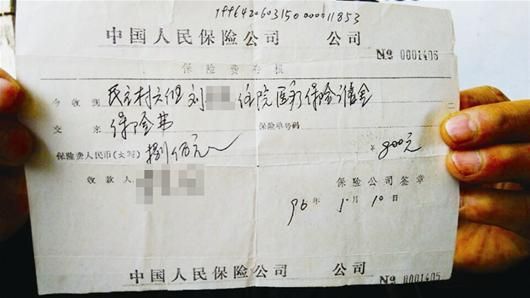 1996420603150000011853
中国人民保险公司 公司
№ 0001405
保险费
今收到 民主村六组 刘 住院医疗保险储金
交来 保险费 保险单号码
保险费人民币(大写) 捌佰元 ¥800元
收款人 保险公司签章
96年5月10日
中国人民保险公司 公司
0001405